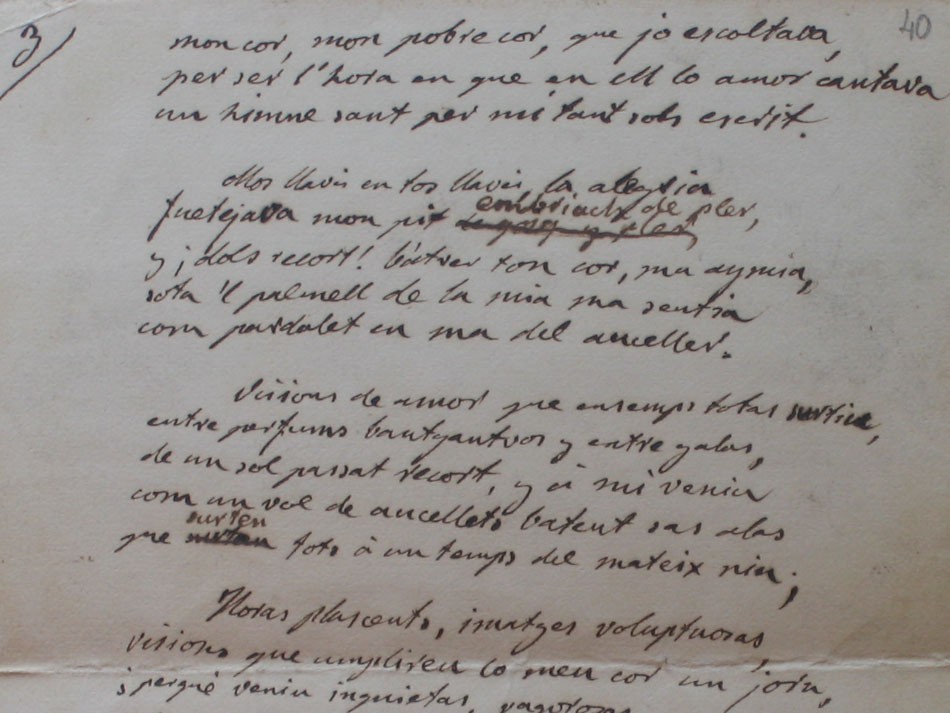 3/
40
mon cor, mon pobre cor, que jo escoltava,
per ser l'hora en que en ell lo amor cantava
un himne sant per mi tant sols escrit.
Mos llavis en tos llavis, la alegria
embriach de pler,
fuetejava mon pit de goig y pler,
y ¡dols recort! batrer ton cor, ma aymia,
sota 'l palmell de la mia ma sentia
com pardalet en ma del auceller.
Visions de amor que ensemps totas surtian,
entre perfums y entre galas,
de un sol passat recort, y á mi venian
com un vol de aucellets batent sas alas
surten
que tots á un temps del mateix niu;
Horas plascents, imatges voluptuosas,
visions que umplireu lo meu cor un jorn,
¿perqué veniu inquietas, vagorosas